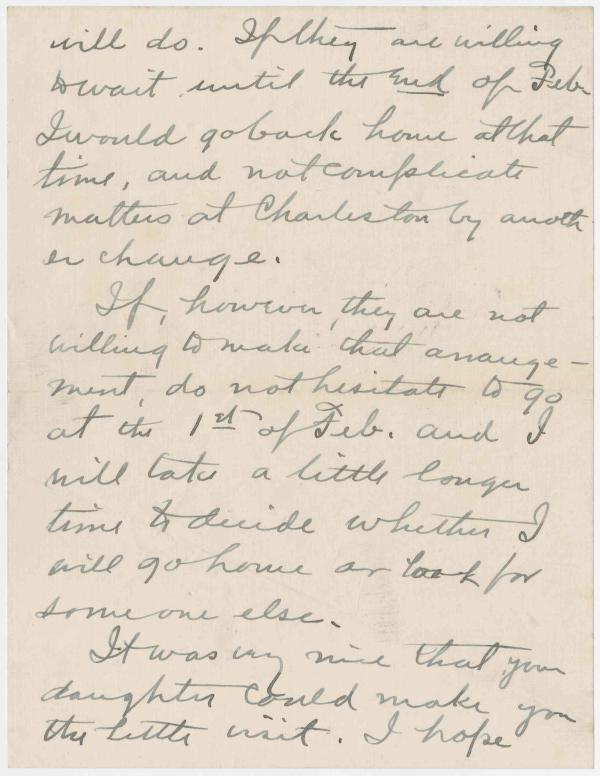 will do. If they are willing
to wait until the end of Feb.
I would go back home at that
time, and not complicate
matters at Charleston by anoth-
er change.
If, however, they are not
willing to make that arrange-
ment, do not hesitate to go
at the 1st of Feb. and I
will take a little longer
time to decide whether I
will go home or look for
someone else.
It was very nice that your
daughter could make you
the little visit. I hope